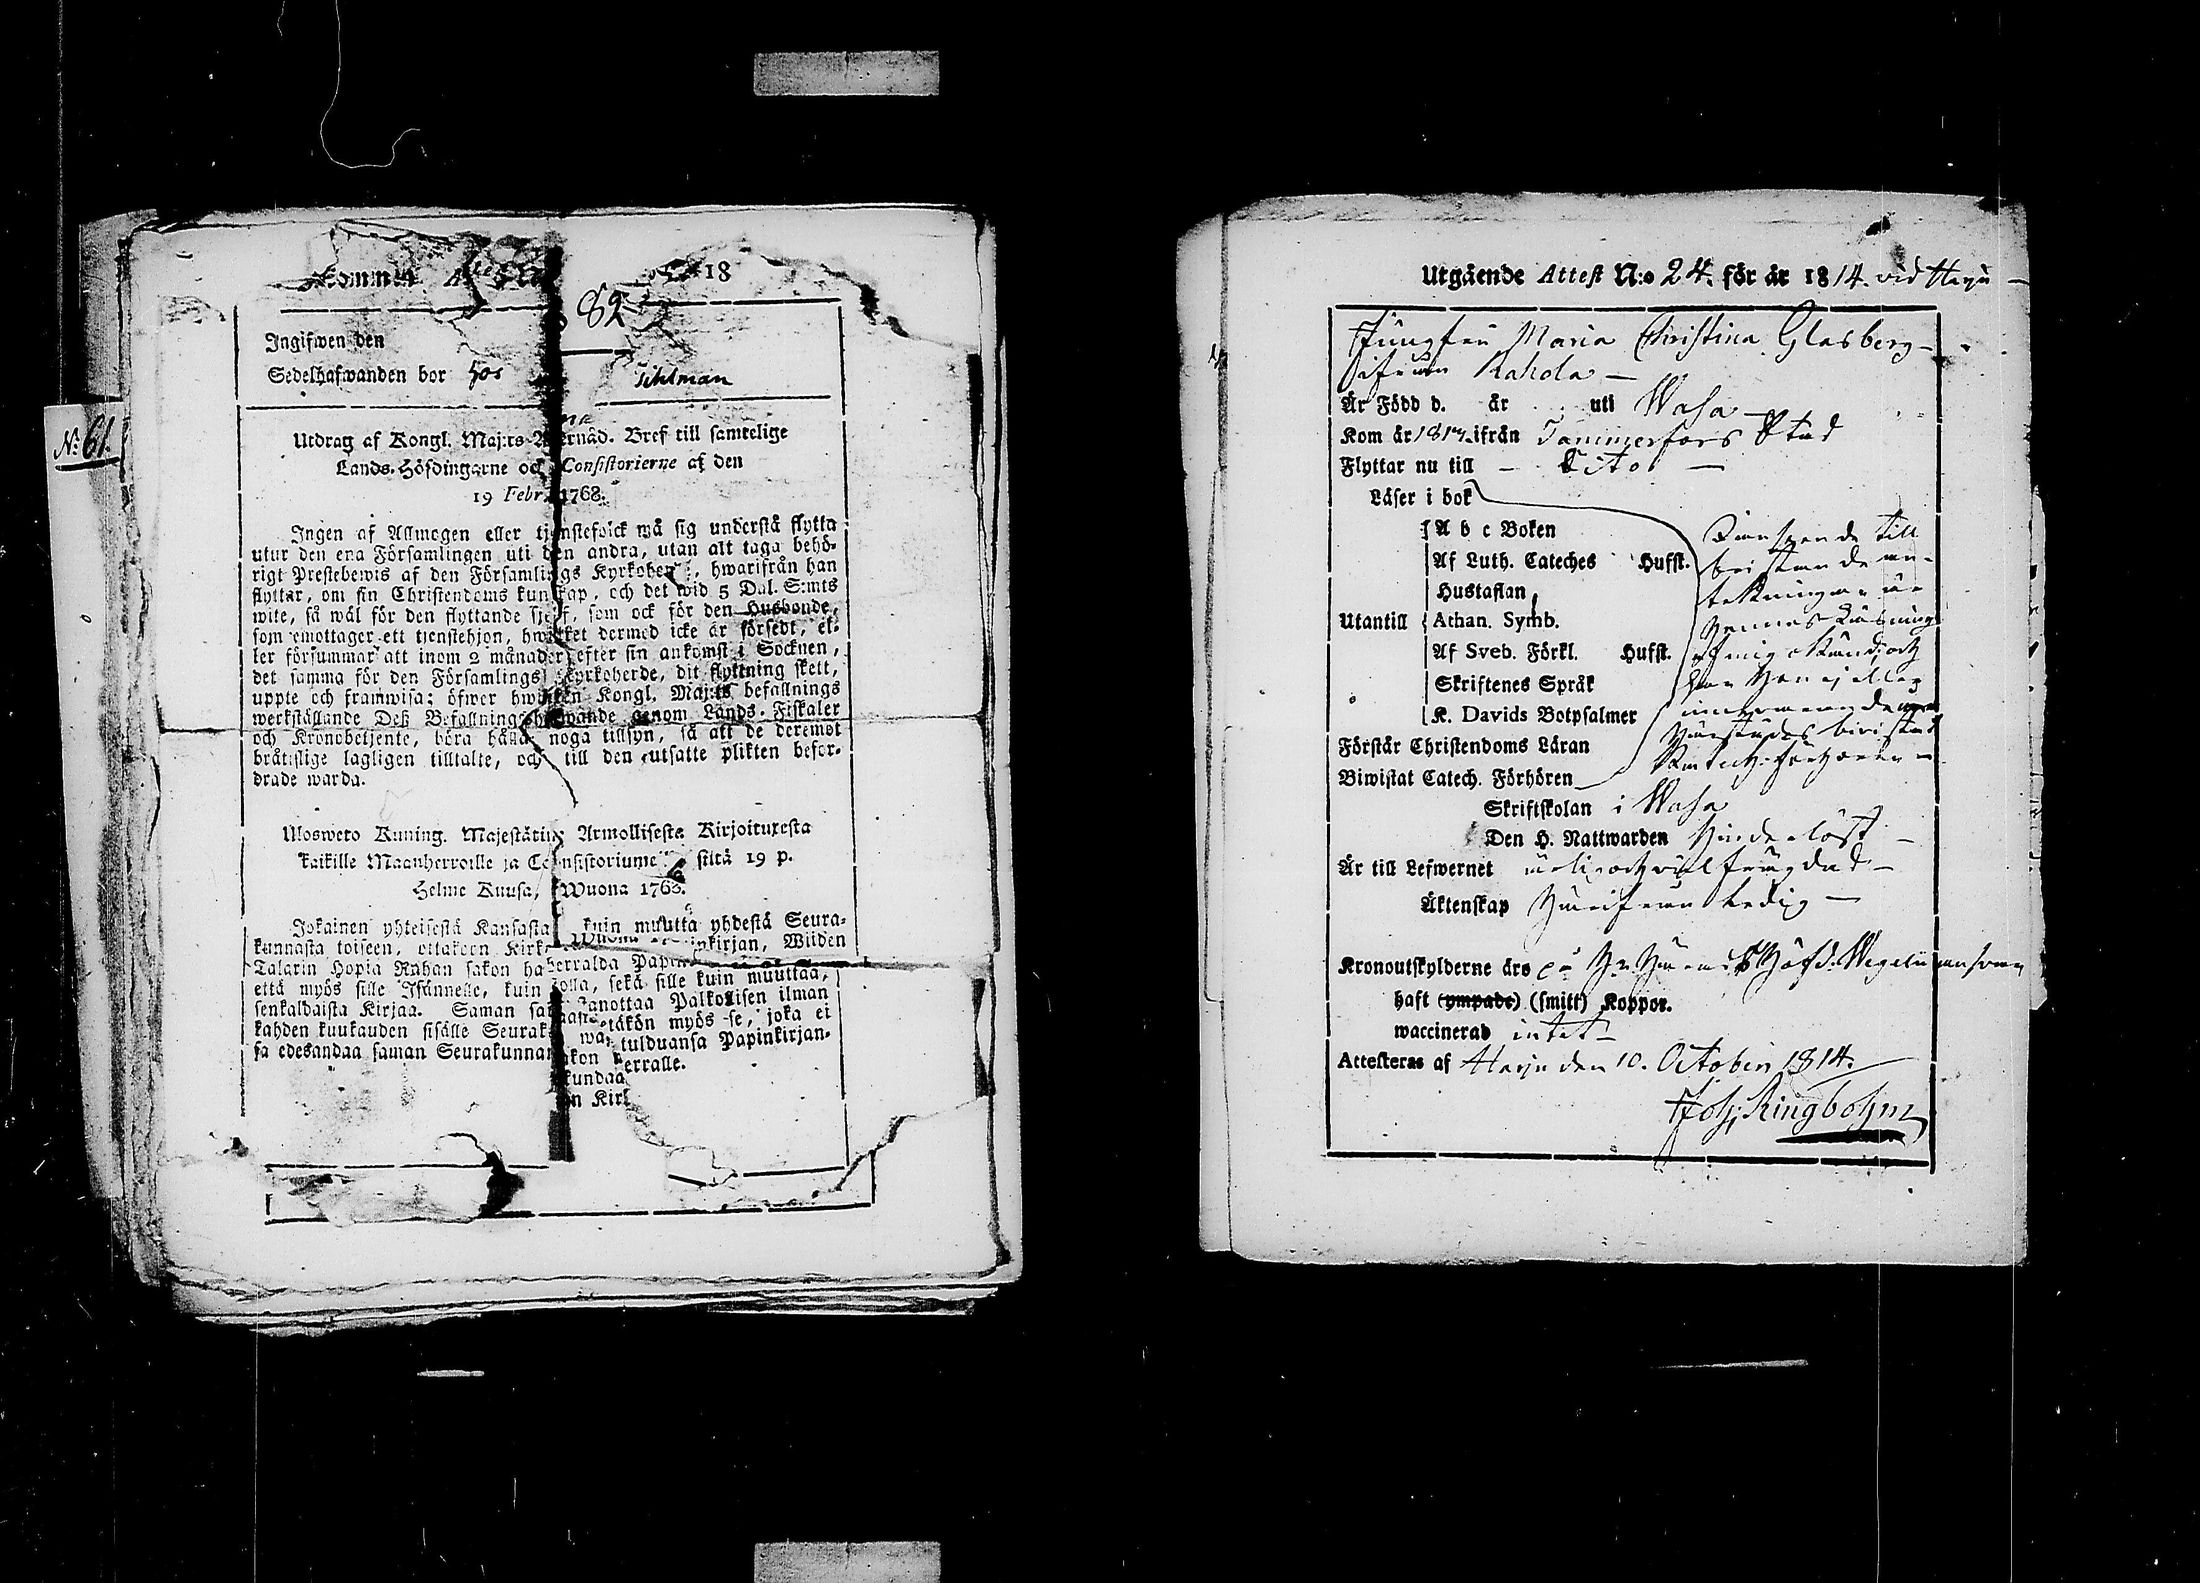 Kommin 18
82
Ingifwen den
Sedelhafwanden bor hos Tihlman
N: 61.
Utdrag af Kongl. Maj:ts nåd. Bref till samtelige
Lands-Höfdingarne och Consistorierne af den
19 Febr. 1768.
Ingen af Allmogen eller tjenstefolck må sig understå flytta
utur den ena Församlingen uti den andra, utan att taga behö-
rigt Prestebewis af den Församlings Kyrkoher, hwarifrån han
flyttar, om sin Christendoms kunskap, och det wid 5 Dal. S:mts
wite, så wäl för den flyttande sjelf, som ock för den Husbonde,
som emottager ett tjenstehjon, hwilket dermed icke är försedt, el-
ler försummar att inom 2 månader efter sin ankomst i Socknen,
det samma för den Församlings Kyrkoherde, dit flyttning skett,
uppte och framwisa; öfwer hwilken Kongl. Maj:ts befallnings
werkställande Deß Befallningshafwande genom Lands-Fiskaler
och Kronobetjente, böra hålla noga tillsyn, så att de deremot
brätslige lagligen tilltalte, och till den utsatte plikten befor-
drade warda.
Mosweto Kuning. Majestätin Armollisesta Kirjoituxesta
kaikille Maanherroille ja Consistoriume stitä 19 p.
Helme Kuusa, Wuona 1768.
Jokainen yhteisestä Kansasta kuin muutta yhdestä Seura-
kunnasta toiseen, ottakoon Kirk nkirjan, Wiiden
Talarin Hopia Rahan sakon ha herralda Papin
että myös sille Isännelle, kuin olla, sekä sille kuin muuttaa,
senkaldaista Kirjaa. Saman sa tanottaa Palkollisen ilman
kahden kuukauden sisälle Seurak täkön myös se, joka ei
sa edesandaa saman Seurakunnan tulduansa Papinkirjan-
akon erralle.
kundaa
n Kirk
Utgående Attest N:o 24. för år 1814. vid Harju
Jungfru Maria Christina Glasberg
ifrån Rahola
Är Född d. år uti Wasa
Kom år 181 ifrån Tammerfors Stad
Flyttar nu till – Dito –
Läser i bok
A b c Boken
Af Luth. Cateches Hufst.
Hustaflan
Utantill Athan. Symb.
Af Sveb. Förkl. Hufst.
Skriftenes Språk
K. Davids Botpsalmer
till
bristande an-
tekningar är
hennes Läsning
af mig okänd; och
har hon ej eller
härstädes bivistat
Förstår Christendoms Läran
Biwistat Catech. Förhören
Skriftskolan i Wasa
Den H. Nattwarden
Är till Lefwernet ärlig och väl frägdad
Äktenskap ledig
Kronoutskylderne äro
haft (ympade) (smitt) Koppor.
waccinerad intet
Attesteras af Harju den 10. October 1814.
Joh: Ringbohm